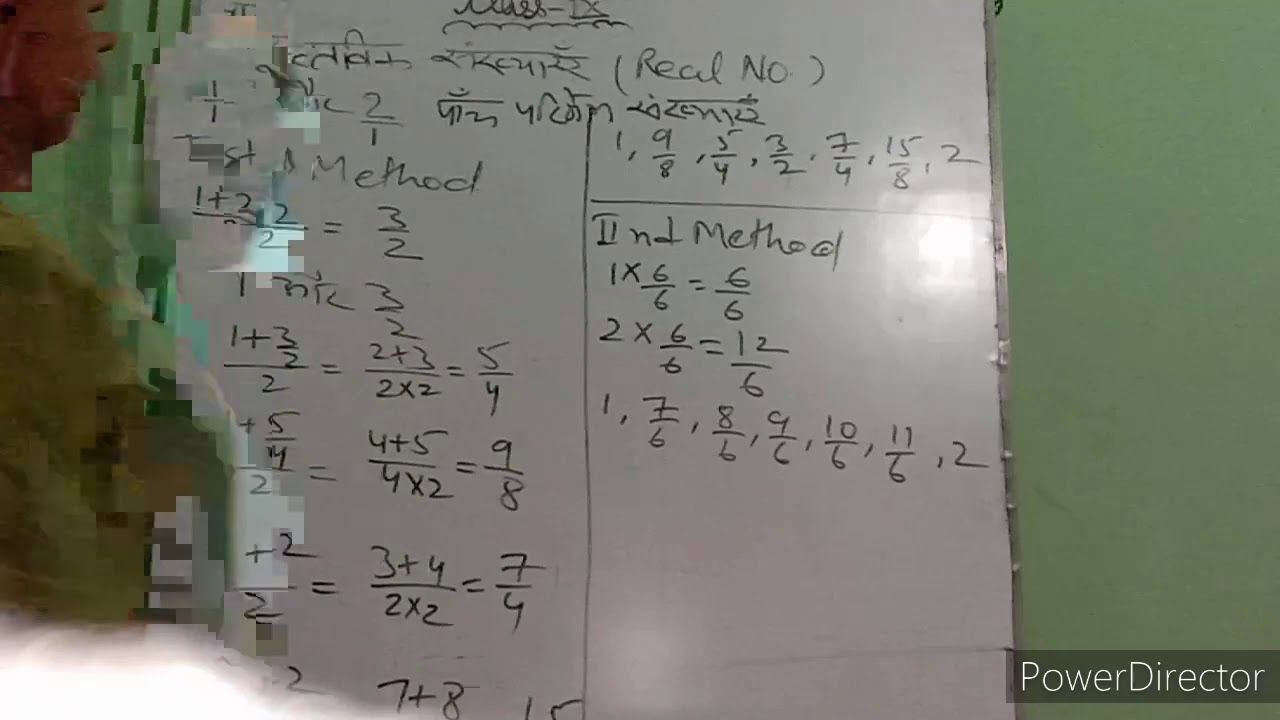 Class-IX
संख्याएँ (Real No.)
1/1 और 2/1 पाँच परिमेय संख्याएँ
Method
= 3/2
1 और 3/2
(1+3/2)/2 = (2+3)/(2×2) = 5/4
+5/4 /2 = (4+5)/(4×2) = 9/8
+2 /2 = (3+4)/(2×2) = 7/4
2 7+8 15
1, 9/8, 5/4, 3/2, 7/4, 15/8, 2
IInd Method
1×6/6 = 6/6
2×6/6 = 12/6
1, 7/6, 8/6, 9/6, 10/6, 11/6, 2
PowerDirector